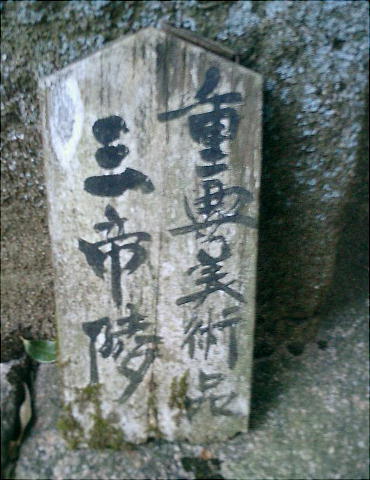 重要美術品
三帝陵